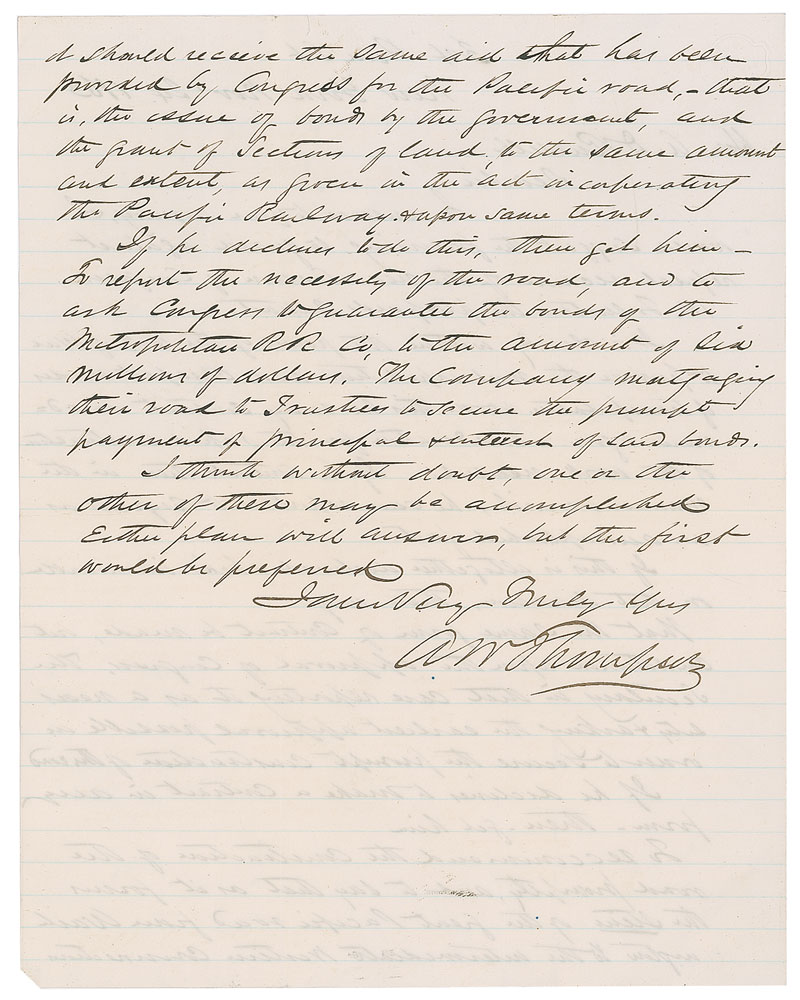 it should receive the same aid that has been
provided by Congress for the Pacific road, - that
is, the issue of bonds by the government, and
the grant of Sections of land, to the same amount
and extent, as given in the act incorporating
the Pacific Railway. & upon same terms.
If he declines to do this, then get him -
To report the necessity of the road, and to
ask Congress to guarantee the bonds of the
Metropolitan RR Co, to the amount of Six
millions of dollars. The Company mortgaging
their road to Trustees to secure the prompt
payment of principal & interest of said bonds.
I think without doubt, one or the
other of these may be accomplished
Either plan will answer, but the first
would be preferred
I am Very Truly Yrs
A W Thompson